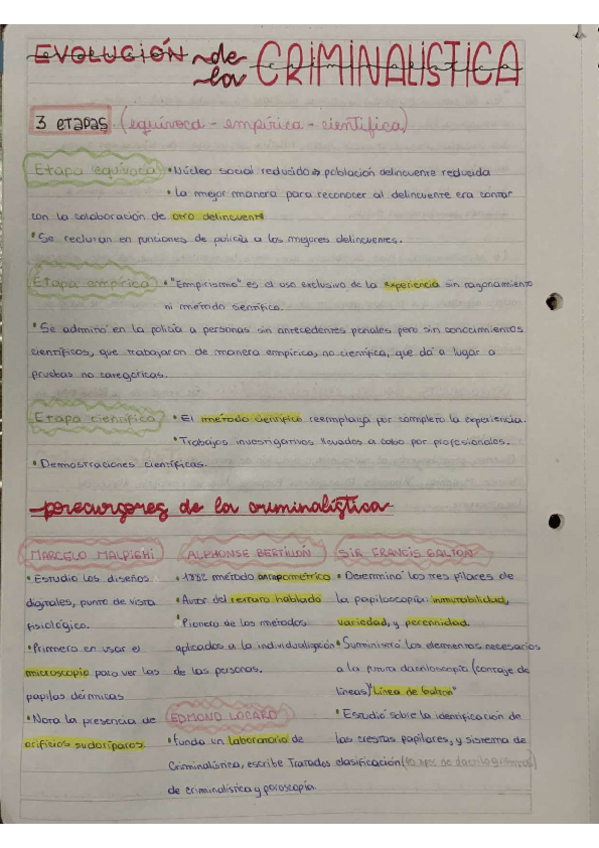 EVOLUCIÓN de la CRIMINALÍSTICA
3 etapas (equívoca - empírica - científica)
Etapa equívoca • Núcleo social reducido → población delincuente reducida
• La mejor manera para reconocer al delincuente era contar
con la colaboración de otro delincuente
• Se reclutan en funciones de policía a los mejores delincuentes.
Etapa empírica • "Empirismo" es el uso exclusivo de la experiencia sin razonamiento
ni método científico.
• Se admitió en la policía a personas sin antecedentes penales pero sin conocimientos
científicos, que trabajaron de manera empírica, no científica, que da a lugar a
pruebas no categóricas.
Etapa científica • El método científico reemplaza por completo la experiencia.
• Trabajos investigativos llevados a cabo por profesionales.
• Demostraciones científicas.
percursores de la criminalística
MARCELO MALPIGHI
• Estudio los diseños
digitales, punto de vista
fisiológico.
• Primero en usar el
microscopio para ver las
papilas dérmicas
• Nota la presencia de
orificios sudoríparos.
ALPHONSE BERTILLÓN
• 1882 método antropométrico
• Autor del retrato hablado
• Pionero de los métodos
aplicados a la individualización
de las personas.
EDMOND LOCARD
• funda un laboratorio de
Criminalística, escribe Tratados
de criminalística y poroscopía.
SIR FRANCIS GALTON
• Determinó los tres pilares de
la papiloscopía: inmutabilidad,
variedad, y perennidad.
• Suministró los elementos necesarios
a la futura dactiloscopia (contaje de
líneas) "Línea de Galton"
• Estudió sobre la identificación de
las crestas papilares, y sistema de
clasificación (40 tipos de dactilogramas)